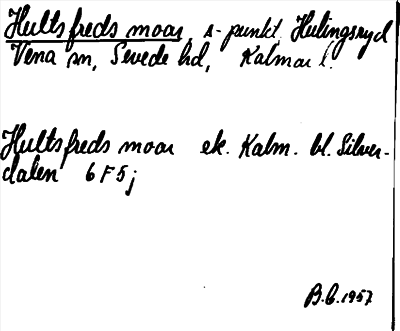 Hultsfreds moar, s-punkt. Hulingsryd
Vena sn, Sevede hd, Kalmar l.
Hultsfreds moar ek. Kalm. bl. Silver-
dalen 6F5j
B.G.1957